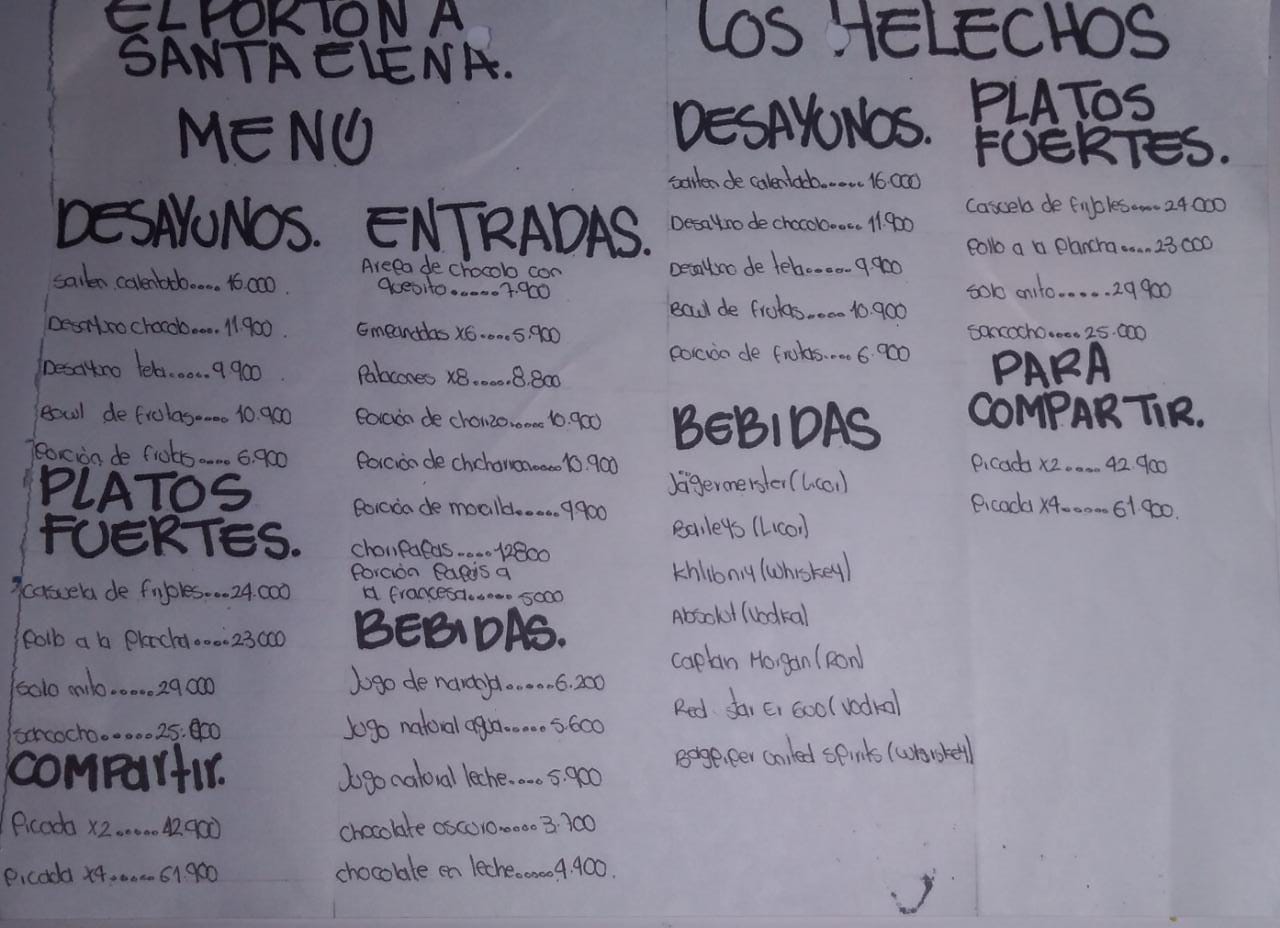 EL PORTON A
SANTA ELENA.
MENÚ
DESAYUNOS.
Sarten calentado.... 16.000
Desayuno chocolo.... 11.900
Desayuno tela..... 9.900
Bowl de frutas.... 10.900
Porción de frutas .... 6.900
PLATOS
FUERTES.
Casuela de frijoles...24.000
Pollo a la plancha....23000
Solo mito.....29.000
Sancocho.....25.000
COMPartir.
Picada x2.....42.900
Picada x4.....61.900
ENTRADAS.
Arepa de chocolo con
quesito .....7.900
Empanadas x6....5.900
Patacones x8.....8.800
Porción de chorizo.....10.900
Porción de chicharron....10.900
Porción de morcilla.....9.900
Choripapas....12800
Porción Papas a
la francesa..... 5000
BEBIDAS.
Jugo de naranja......6.200
Jugo natural agua.....5.600
Jugo natural leche....5.900
chocolate oscuro.....3.700
chocolate en leche.....4.400.
LOS HELECHOS
DESAYUNOS.
Sarten de calentado..... 16.000
Desayuno de chocolo.... 11.900
Desayuno de tela..... 9.900
Bowl de frutas.... 10.900
Porción de frutas.... 6.900
BEBIDAS
Jägermeister (Licor)
Baileys (Licor)
Khlibniy (Whiskey)
Absolut (Vodka)
Captan Morgan (RON)
Red Star Er 600 (Vodka)
Bagpiper United Spirits (Whiskey)
PLATOS
FUERTES.
Casuela de frijoles.... 24.000
Pollo a la plancha.... 23000
Solo mito......29900
Sancocho.... 25.000
PARA
COMPARTIR.
Picada x2.... 42.900
Picada x4..... 61.900.